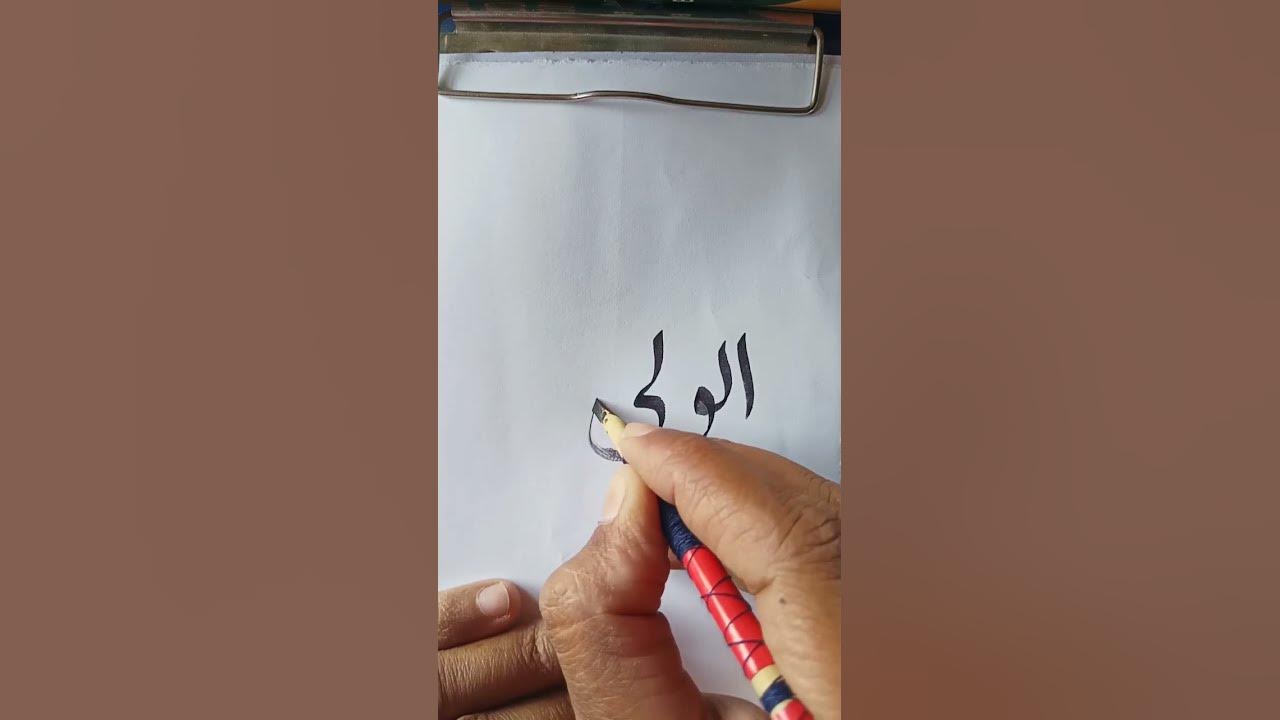 الولى